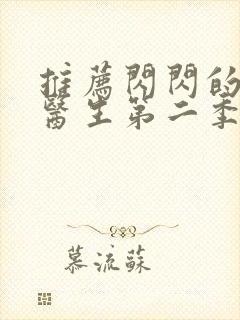 推薦閃閃的
醫生第二季
慕流蘇